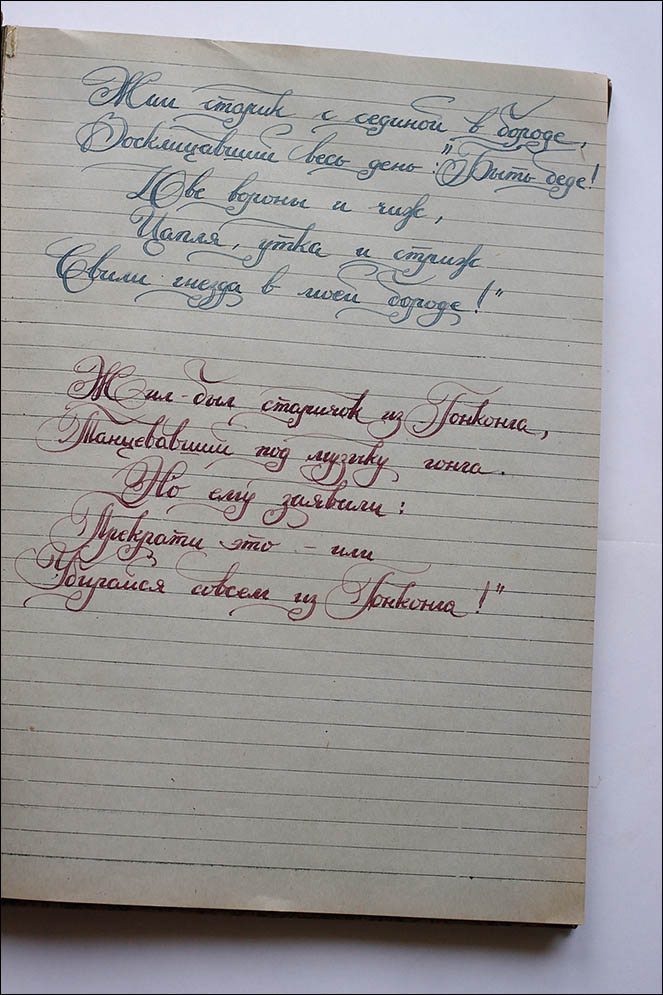 Жил старик с сединой в бороде,
Восклицавший весь день: "Быть беде!
Две вороны и чиж,
Цапля, утка и стриж
Свили гнезда в моей бороде!"
Жил-был старичок из Гонконга,
Танцевавший под музыку гонга.
Но ему заявили:
Прекрати это – или
Убирайся совсем из Гонконга!"